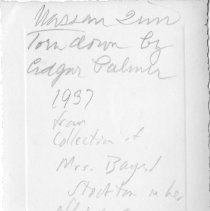 Nassau Inn
Torn down by
Edgar Palmer
1937
from
Collection of
Mrs. Bayard
Stockton in her